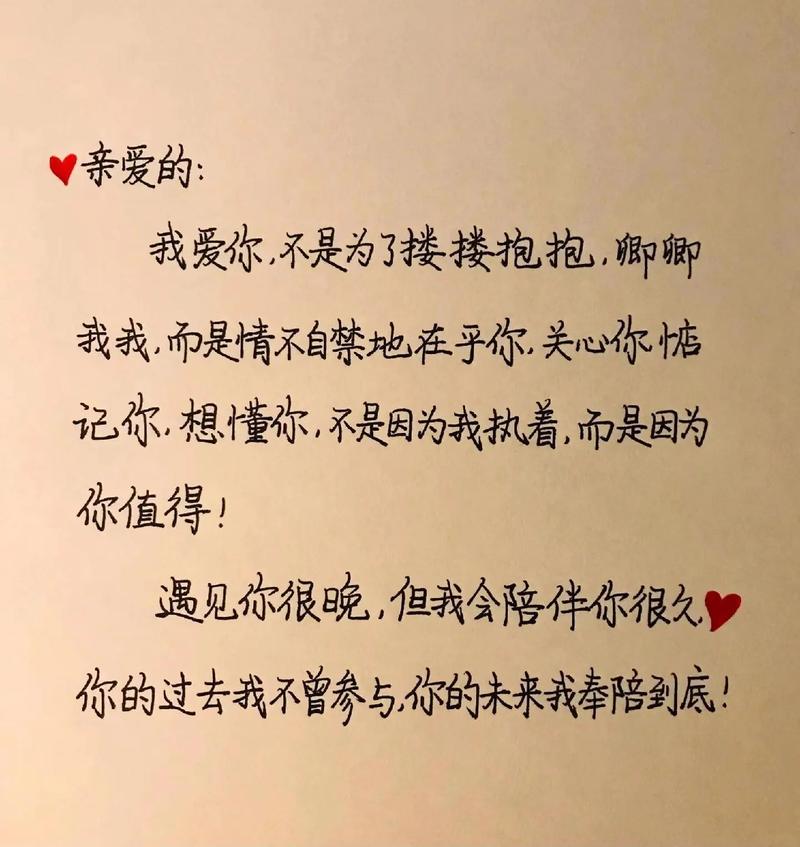 亲爱的:
我爱你,不是为了搂搂抱抱,卿卿
我我,而是情不自禁地在乎你,关心你惦
记你,想懂你,不是因为我执着,而是因为
你值得!
遇见你很晚,但我会陪伴你很久,
你的过去我不曾参与,你的未来我奉陪到底!